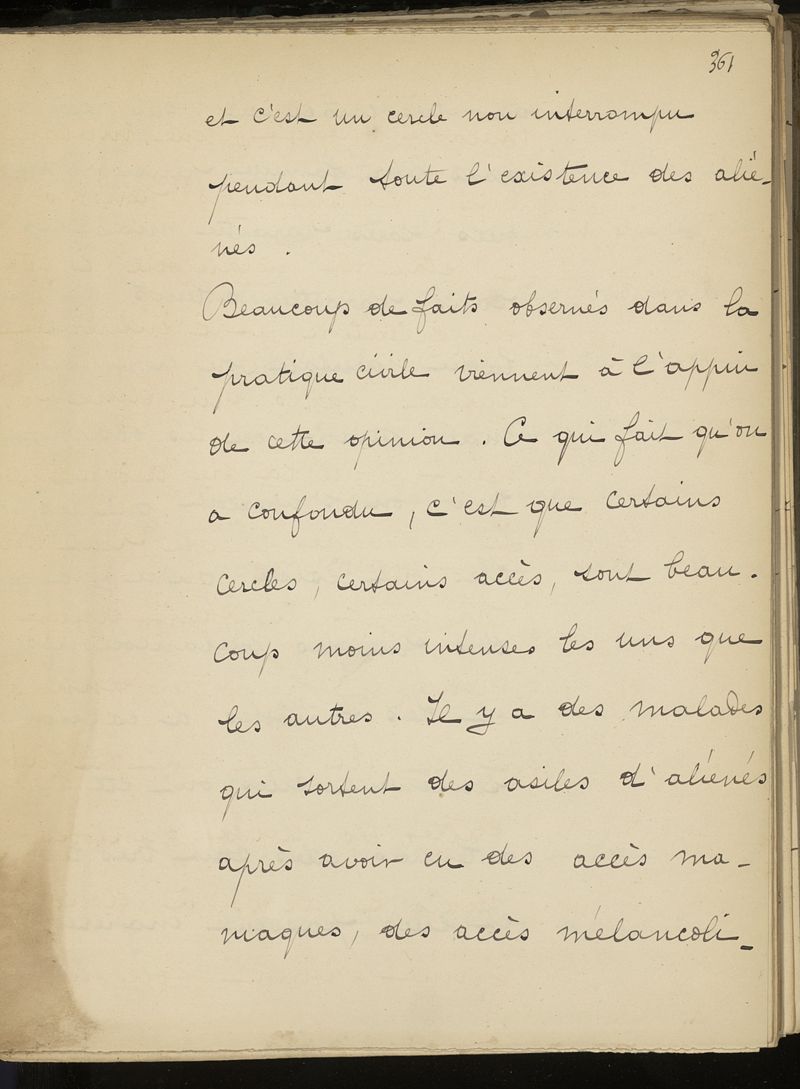 361
et c'est un cercle non interrompu
pendant toute l'existence des alié-
nés .
Beaucoup de faits observés dans la
pratique civile viennent à l'appui
de cette opinion . Ce qui fait qu'on
a confondu , c'est que certains
cercles , certains accès , sont beau-
coup moins intenses les uns que
les autres . Il y a des malades
qui sortent des asiles d'aliénés
après avoir eu des accès ma-
niaques , des accès mélancoli-